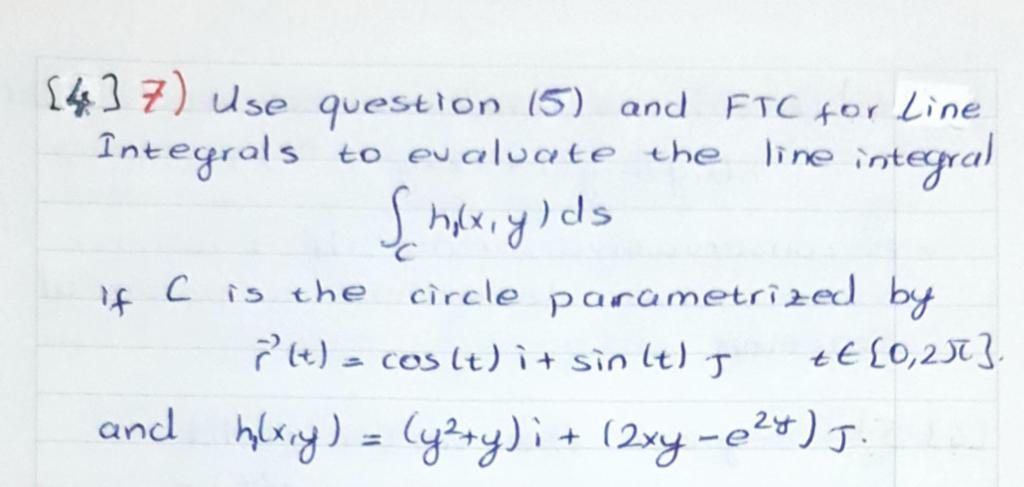 [4] 7) Use question (5) and FTC for Line
Integrals to evaluate the line integral
∫_C h(x,y) ds
if C is the circle parametrized by
r⃗(t) = cos(t) i + sin(t) j t ∈ [0,2π].
and h(x,y) = (y²+y) i + (2xy - e^{2y}) j.